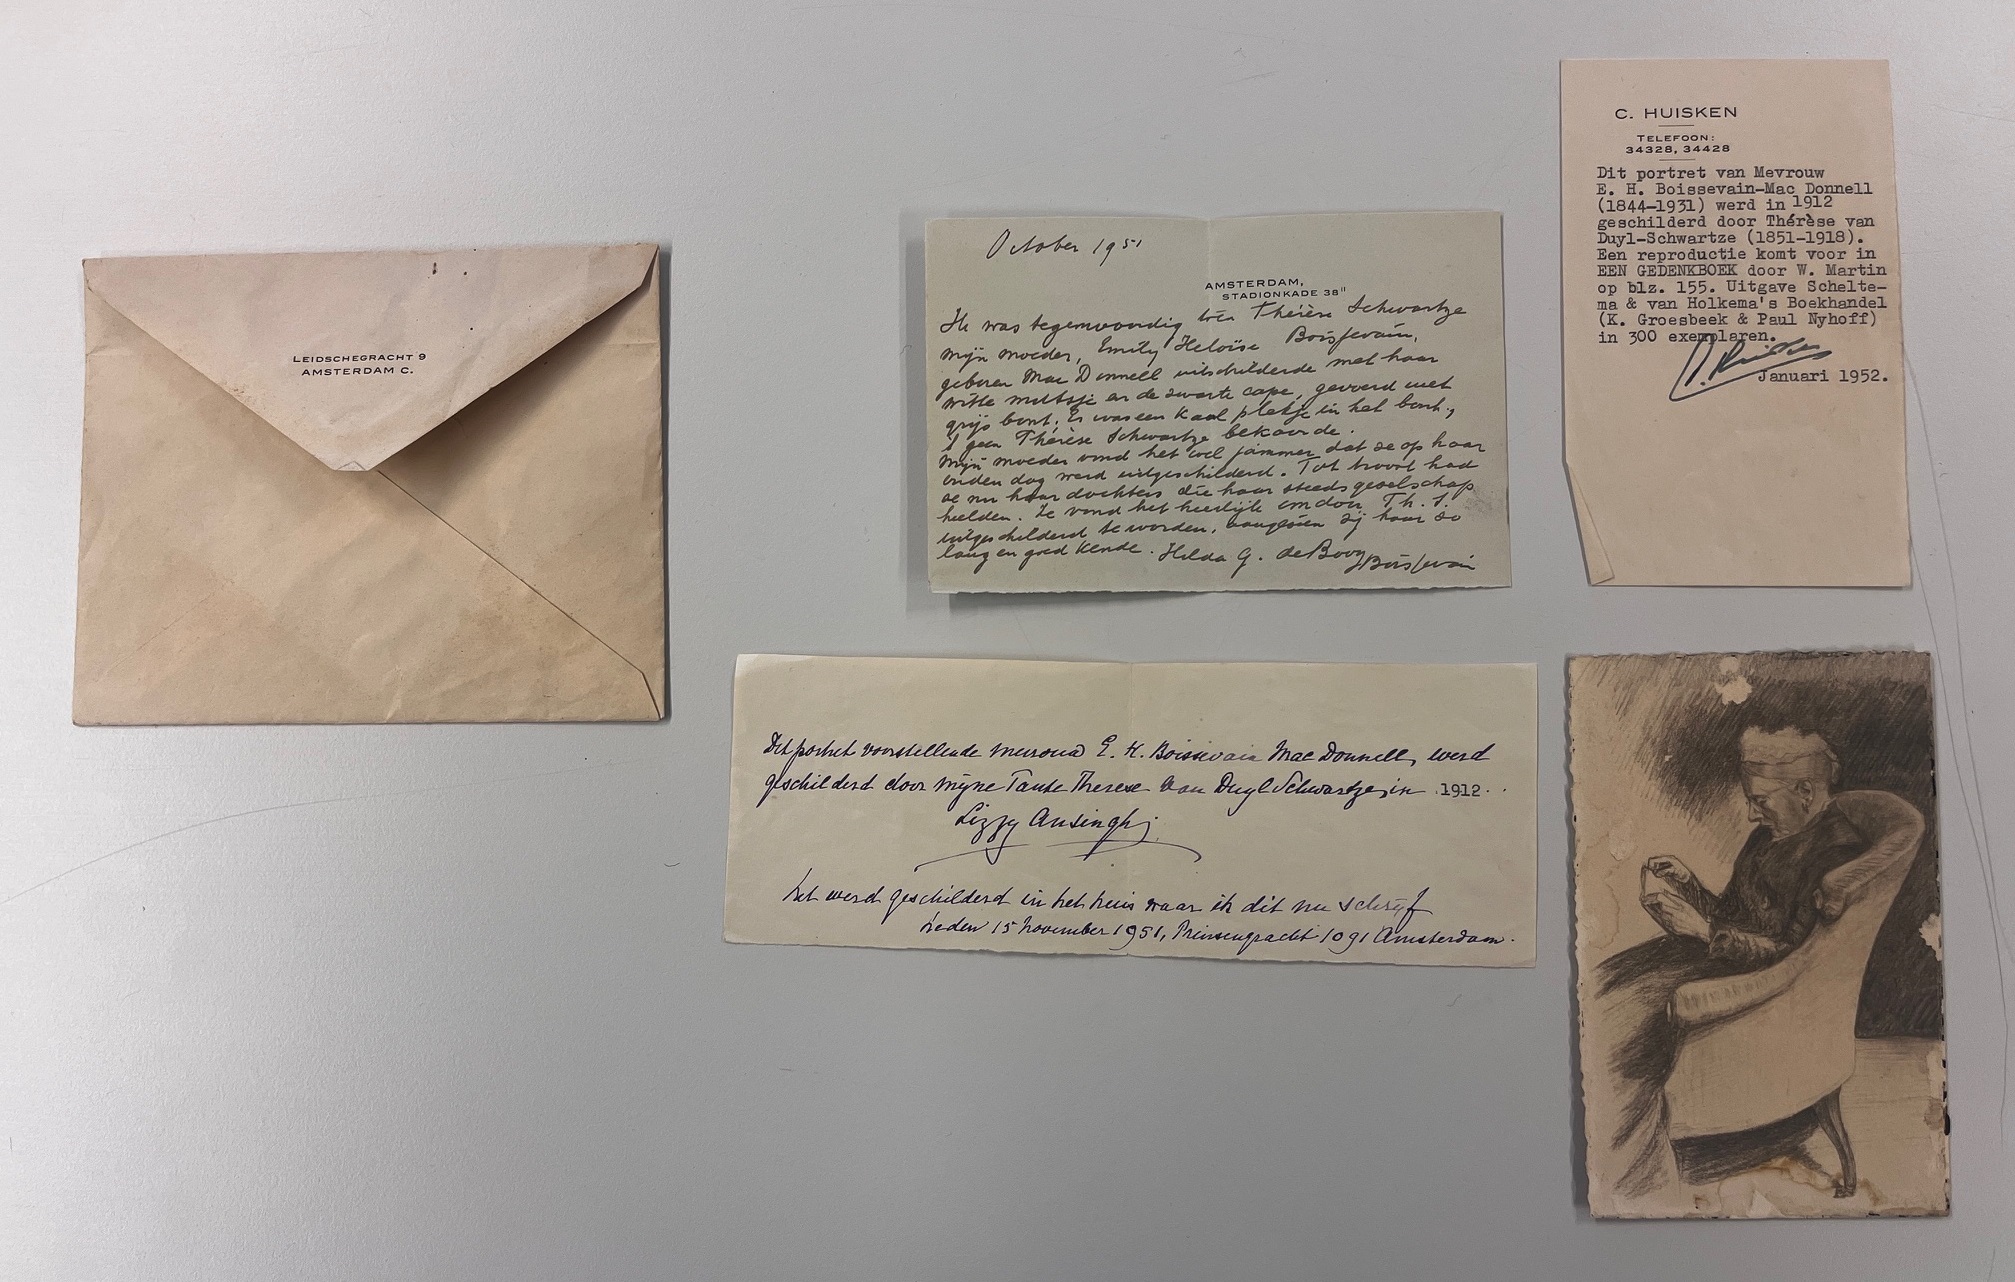 LEIDSCHEGRACHT 9
AMSTERDAM C.
October 1951
AMSTERDAM,
STADIONKADE 38II
Ik was tegenwoordig toen Thérèse Schwartze
mijn moeder, Emily Heloïse Boissevain,
geboren Mac Donnell uitschilderde met haar
witte mutsje en de zwarte cape, gevoerd met
grijs bont. Er was een kaal plekje in het bont,
Thérèse Schwartze bekoorde.
Mijn moeder vond het wel jammer dat ze op haar
ouden dag werd uitgeschilderd. Tot troost had
ze nu haar dochters die haar steeds gezelschap
hielden. Ze vond het heerlijk om door Th. S.
uitgeschilderd te worden, aangezien zij haar zo
lang en goed kende. Hilda G. de Booy Boissevain
C. HUISKEN
TELEFOON:
34328, 34428
Dit portret van Mevrouw
E. H. Boissevain-Mac Donnell
(1844-1931) werd in 1912
geschilderd door Thérèse van
Duyl-Schwartze (1851-1918).
Een reproductie komt voor in
EEN GEDENKBOEK door W. Martin
op blz. 155. Uitgave Schelte-
ma & van Holkema's Boekhandel
(K. Groesbeek & Paul Nyhoff)
in 300 exemplaren.
C. Huisken
Januari 1952.
Dit portret voorstellende mevrouw E. H. Boissevain Mac Donnell, werd
geschilderd door mijne Tante Therese van Duyl Schwartze, in 1912.
Lizzy Ansingh
het werd geschilderd in het huis waar ik dit nu schrijf
heden 15 November 1951, Prinsengracht 1091 Amsterdam.